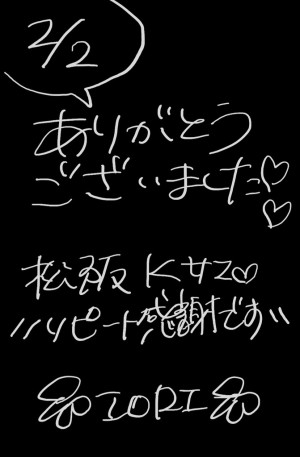 2/2
ありがとう
ございました♡♡
松阪 K サン♡
〃リピート感謝です〃
IORI